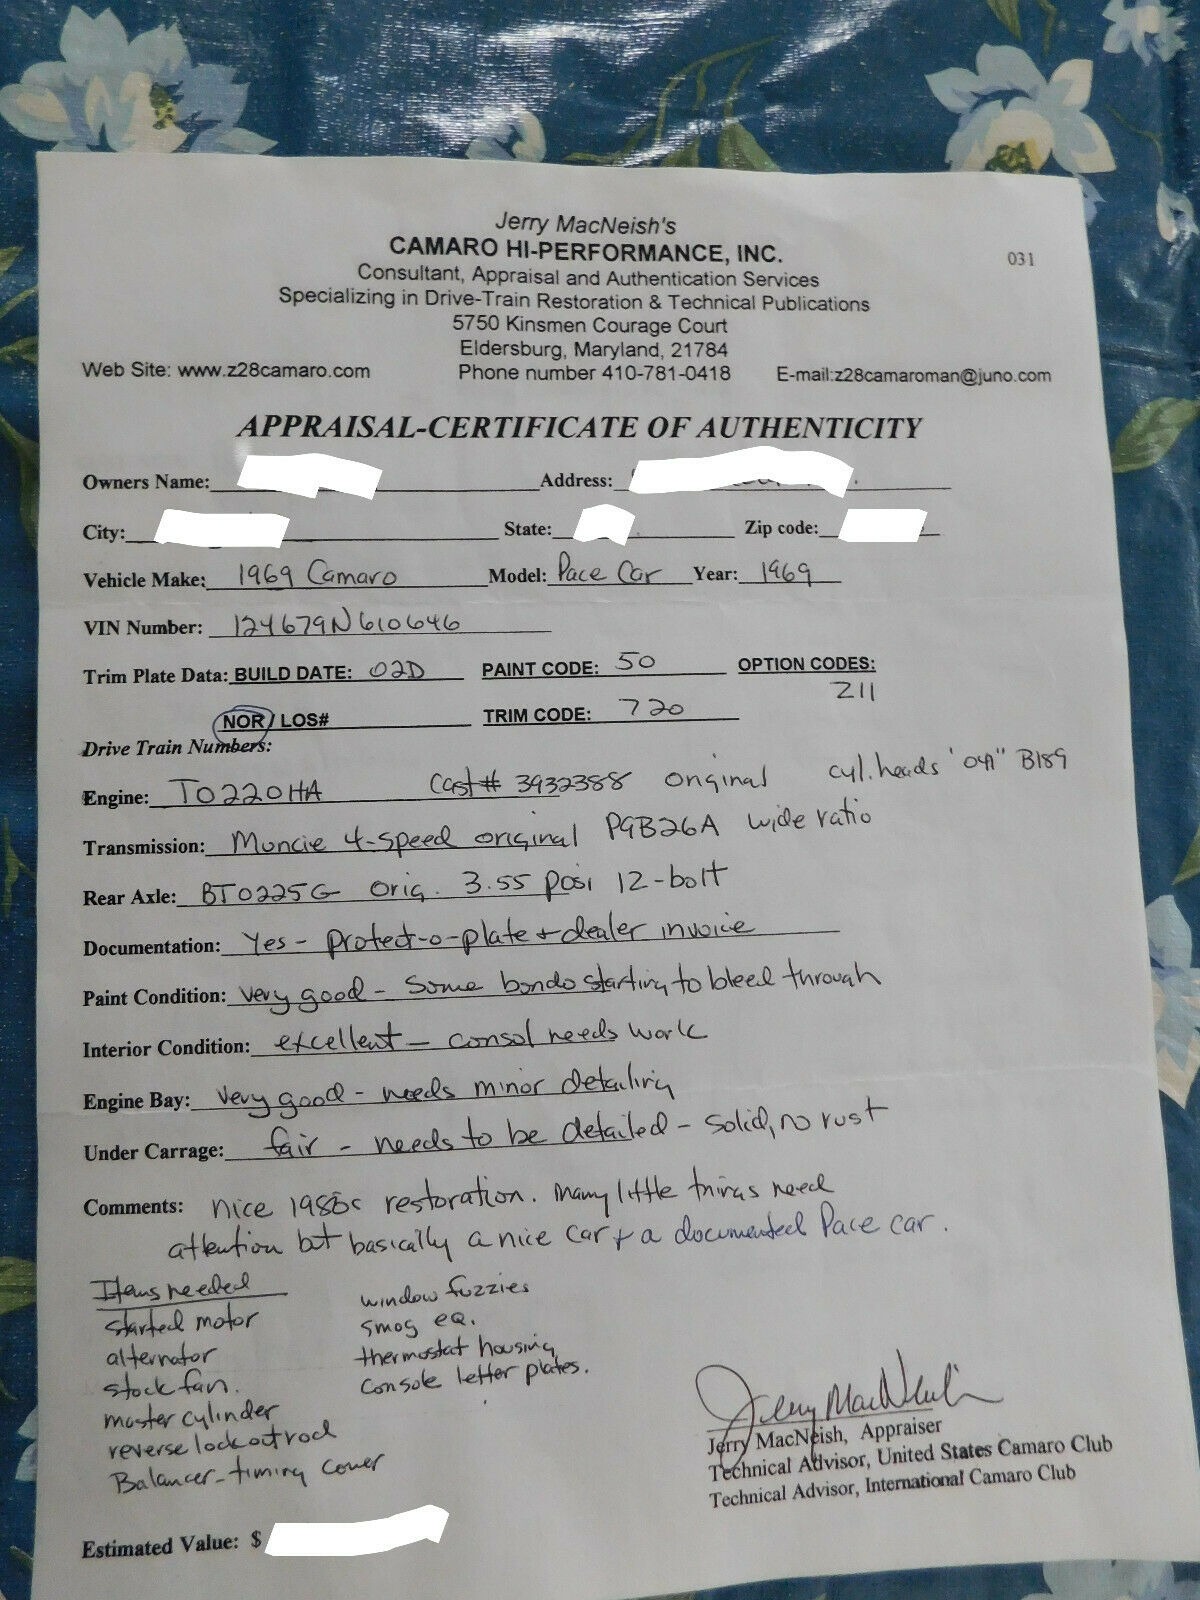 Jerry MacNeish's
CAMARO HI-PERFORMANCE, INC.
031
Consultant, Appraisal and Authentication Services
Specializing in Drive-Train Restoration & Technical Publications
5750 Kinsmen Courage Court
Eldersburg, Maryland, 21784
Web Site: www.z28camaro.com Phone number 410-781-0418 E-mail:z28camaroman@juno.com
APPRAISAL-CERTIFICATE OF AUTHENTICITY
Owners Name: Address:
City: State: Zip code:
Vehicle Make: 1969 Camaro Model: Pace Car Year: 1969
VIN Number: 124679N610646
Trim Plate Data: BUILD DATE: 02D PAINT CODE: 50 OPTION CODES:
Z11
NOR / LOS# TRIM CODE: 720
Drive Train Numbers:
Engine: T0220HA Cast# 3932388 original cyl. heads '041" B189
Transmission: Muncie 4-speed original P9B26A wide ratio
Rear Axle: BT0225G orig. 3.55 posi 12-bolt
Documentation: Yes - protect-o-plate + dealer invoice
Paint Condition: very good - some bondo starting to bleed through
Interior Condition: excellent - consol needs work
Engine Bay: very good - needs minor detailing
Under Carrage: fair - needs to be detailed - solid, no rust
Comments: nice 1980s restoration. Many little things need
attention but basically a nice car + a documented Pace car.
Items needed
started motor
alternator
stock fan.
master cylinder
reverse lockout rod
Balancer-timing cover
window fuzzies
smog eq.
thermostat housing
console letter plates.
Jerry MacNeish
Jerry MacNeish, Appraiser
Technical Advisor, United States Camaro Club
Technical Advisor, International Camaro Club
Estimated Value: $